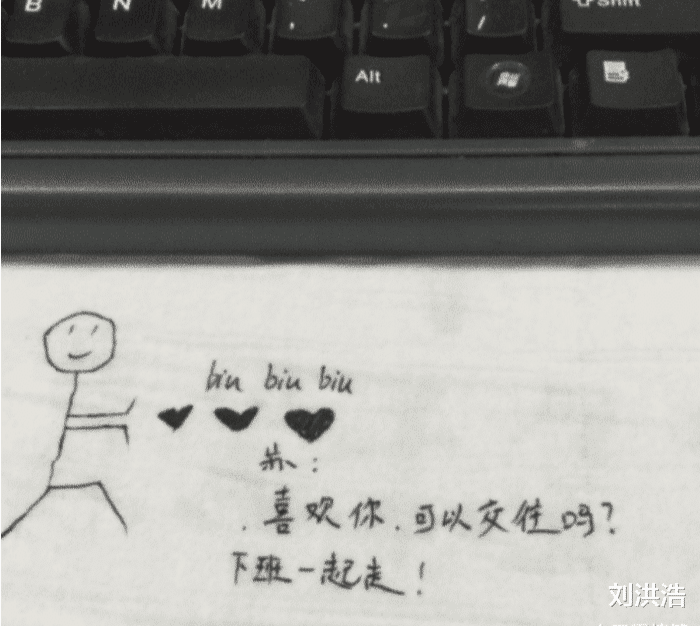 B N M , . / ⇧Shift
Alt
biu biu biu
苏:
喜欢你.可以交往吗?
下班一起走!
刘洪浩